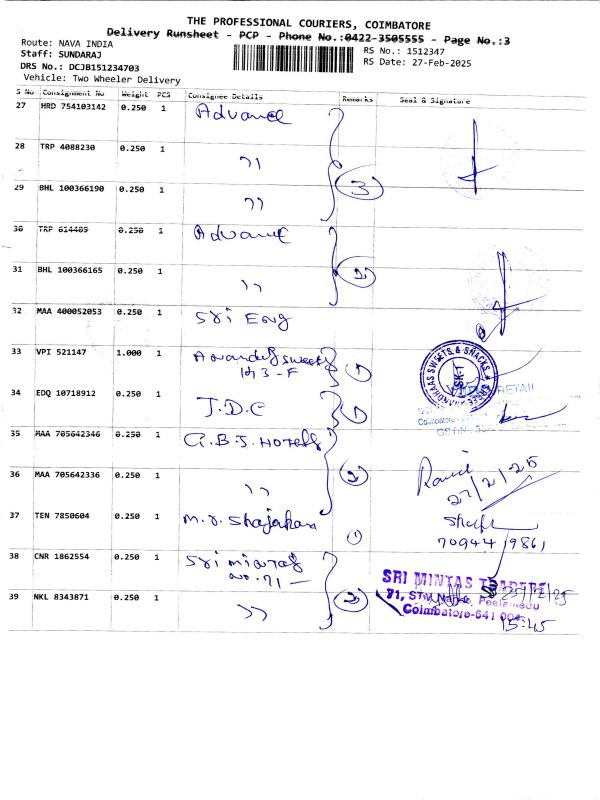 THE PROFESSIONAL COURIERS, COIMBATORE
Delivery Runsheet - PCP - Phone No.:0422-3505555 - Page No.:3
Route: NAVA INDIA
Staff: SUNDARAJ
DRS No.: DCJB151234703
Vehicle: Two Wheeler Delivery
RS No.: 1512347
RS Date: 27-Feb-2025
S No Consignment No Weight PCS Consignee Details Remarks Seal & Signature
27 HRD 754103142 0.250 1 Advance
28 TRP 4088230 0.250 1 ,,
29 BHL 100366190 0.250 1 ,, 3
30 TRP 614489 0.250 1 Advance
31 BHL 100366165 0.250 1 ,, 2
32 MAA 400052053 0.250 1 Sri Eng
33 VPI 521147 1.000 1 Sweets 1
SWEETS & SNACKS
SK-1
RETAIL
34 EDQ 10718912 0.250 1 J.D.C 1
Coimbatore
35 MAA 705642346 0.250 1 G.B.J. Hotels
36 MAA 705642336 0.250 1 ,, 2
27/2/25
37 TEN 7850604 0.250 1 M.r. Shajahan 1
70944 19861
38 CNR 1862554 0.250 1 Sri mintas
No. 71 -
39 NKL 8343871 0.250 1 ,, 2
SRI MINTAS TRADERS
71, Peelamedu
Coimbatore-641 004
15:45